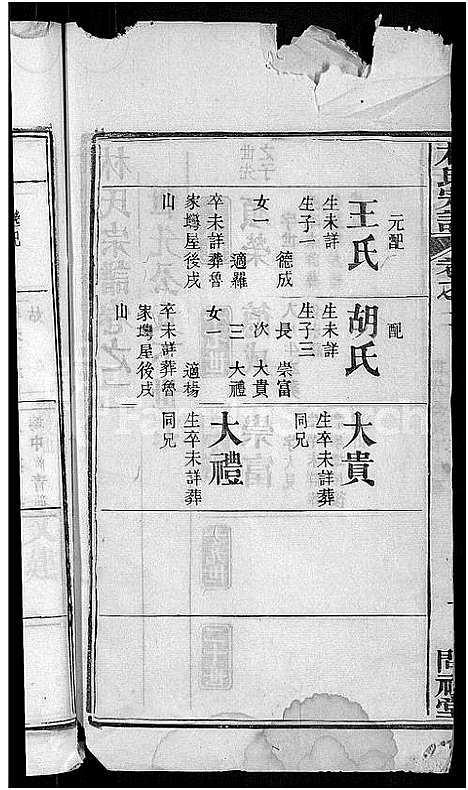 林氏宗譜
問禮堂
元配
王氏
生未詳
生子一
德成
女一
適羅
卒未詳葬魯
家塆屋後戌
山
配
胡氏
生未詳
生子三
長 崇富
次 大貴
三 大禮
女一
適楊
卒未詳葬魯
家塆屋後戌
山
大貴
生卒未詳葬
同兄
大禮
生卒未詳葬
同兄